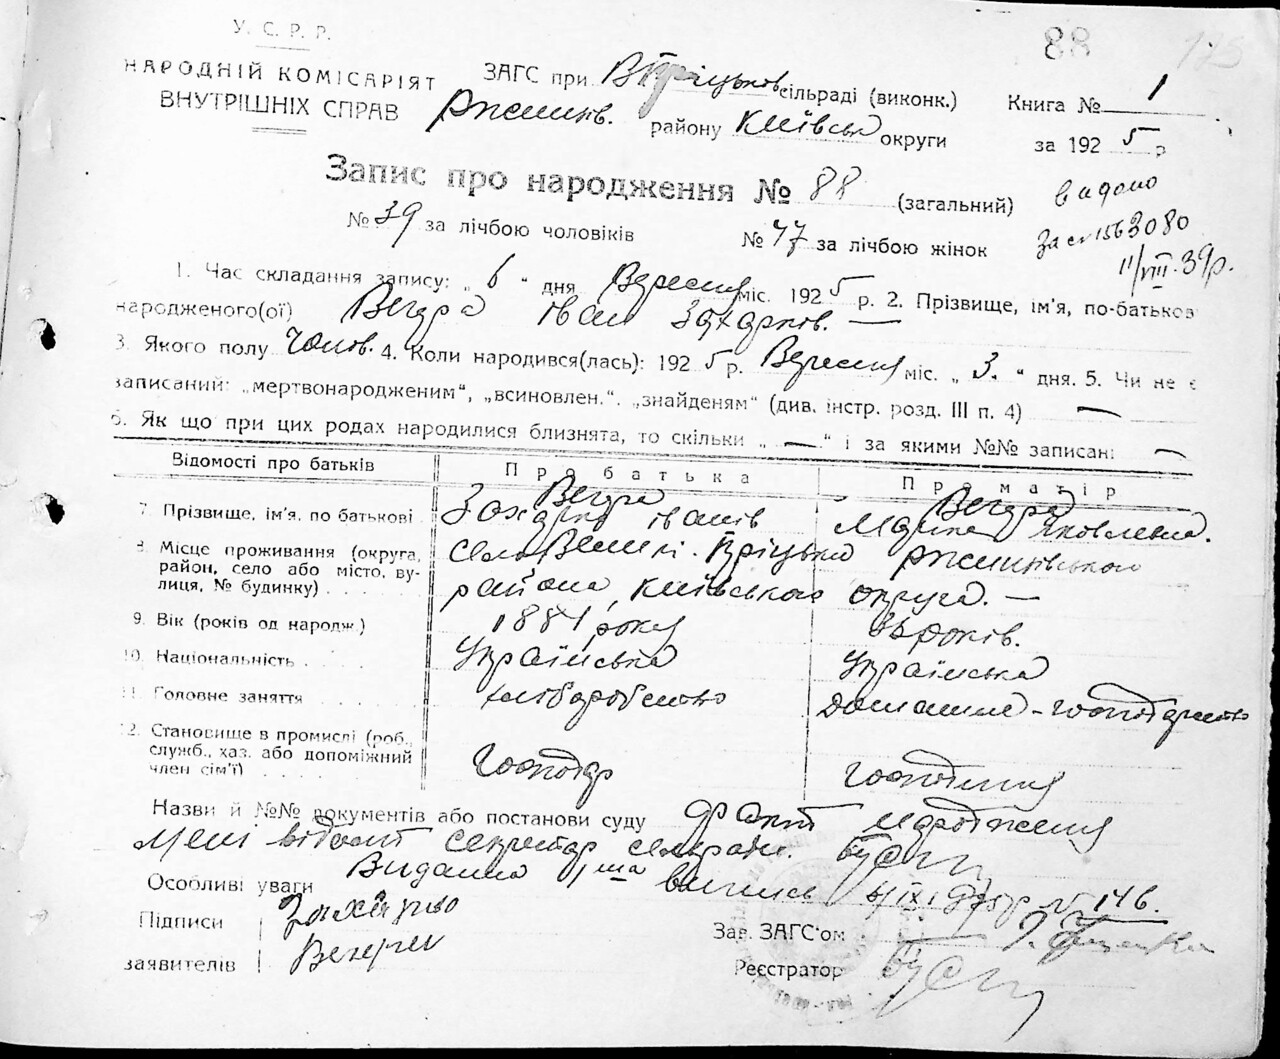 У. С. Р. Р.
88
175
НАРОДНІЙ КОМІСАРІЯТ
ВНУТРІШНІХ СПРАВ
ЗАГС при В Пріцьков сільраді (виконк.)
Книга № 1
Ржищів. району Київськ округи
за 1925 р
Запис про народження № 88 (загальний)
видано
№ 39 за лічбою чоловіків
№ 47 за лічбою жінок
За св 1563080
11/VIII.39р.
1. Час складання запису: „ 6 “ дня Вересня міс. 1925 р. 2. Прізвище, ім'я, по-батьков
народженого(ої) Вегера Іван Захарків. —
3. Якого полу Чолов. 4. Коли народився(лась): 1925 р. Вересня міс. „ 3. “ дня. 5. Чи не є
записаний: „мертвонародженим“, „всиновлен.“, „знайденям“ (див. інстр. розд. III п. 4) —
6. Як що при цих родах народилися близнята, то скільки „ — “ і за якими №№ записані —
Відомості про батьків
Про батька
Про матір
7. Прізвище, ім'я, по батькові
Вегера
Захарко Іванів
Вегера
Яковлевна.
8. Місце проживання (округа,
район, село або місто, ву-
лиця, № будинку)
село Великі Пріцьки Ржищівського
района, Київського округа. —
9. Вік (років од народж.)
1881 року
років.
10. Національність
Українська
Українська
11. Головне заняття
хліборобство
Домашнє-господарство
12. Становище в промислі (роб.,
служб., хаз. або допоміжний
член сім'ї)
Господар
Господиня
Назви й №№ документів або постанови суду факт народження
мені відомий секретар сельради.
Особливі уваги
Виданна 1ша випись № 146.
Підписи
заявителів
Захарко
Вегера
Зав. ЗАГС'ом
Реєстратор